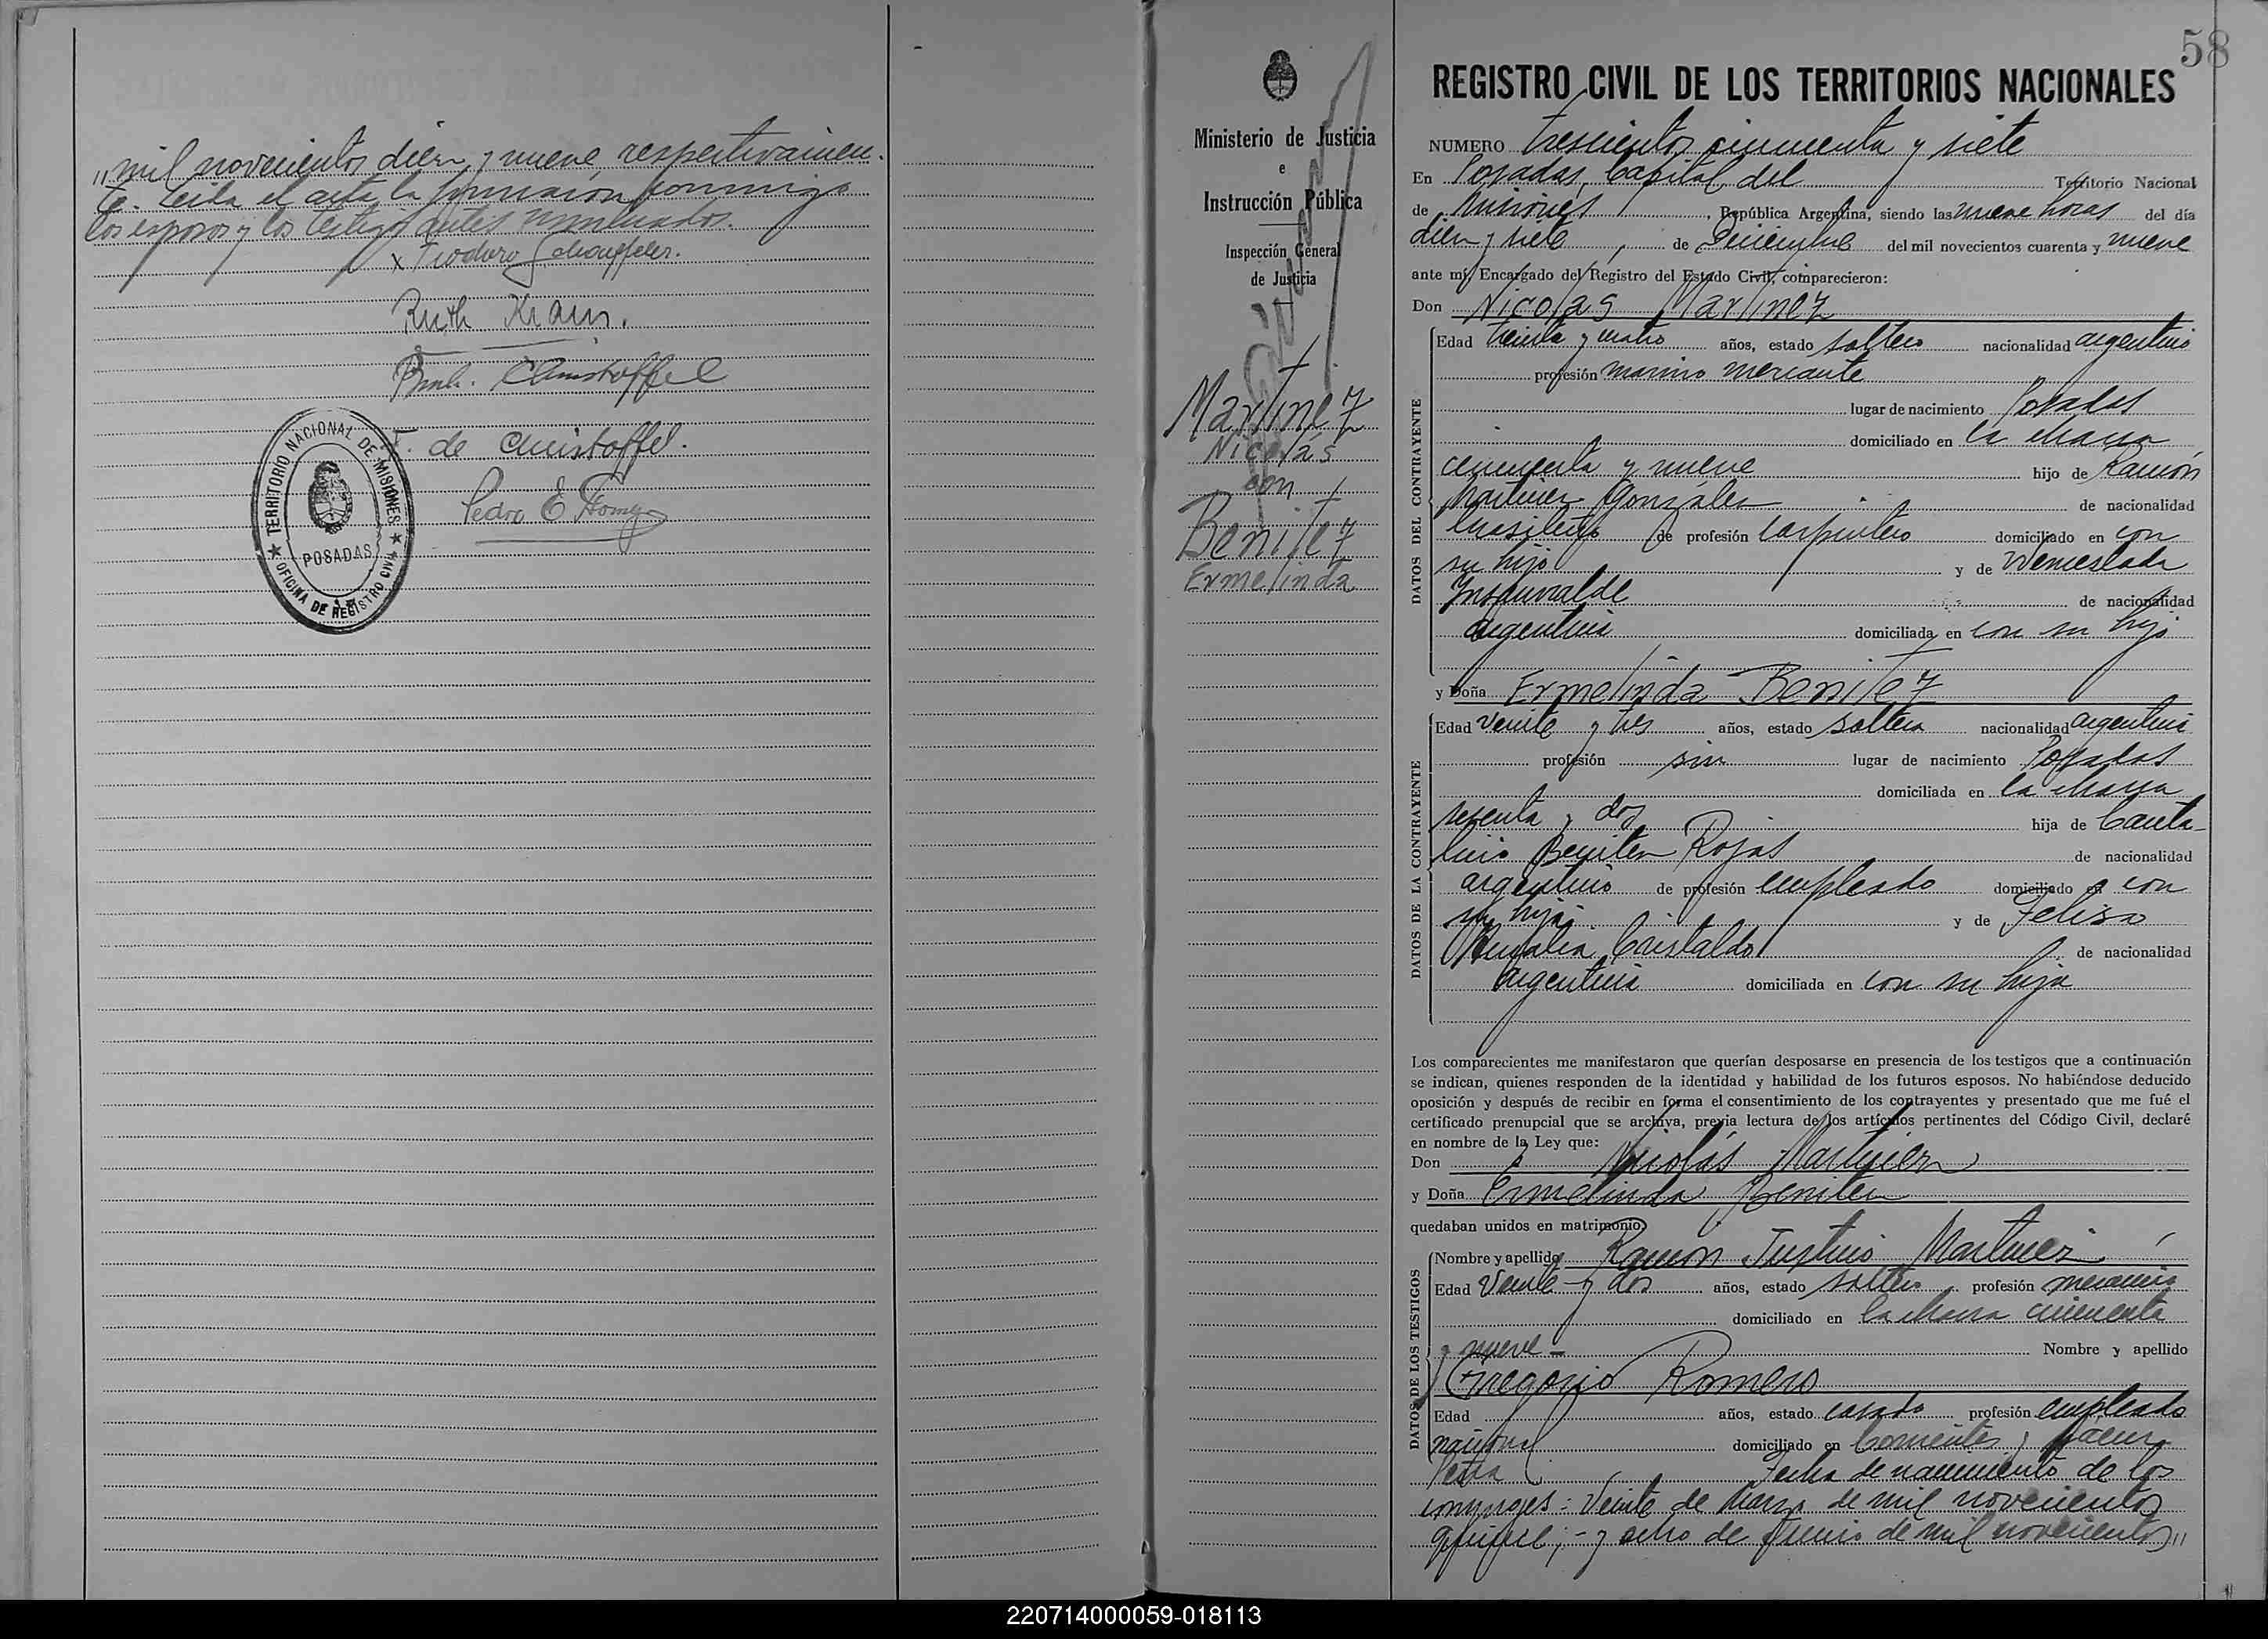 "mil novecientos diez y nueve respectivamen-
te. Leida el acta, la firmaron conmigo
los esposos y los testigos antes nombrados.
x Teodoro Schouffeler.
Ruth Kraus.
Christoffel
F. de Christoffel.
Pedro E
TERRITORIO NACIONAL DE MISIONES
POSADAS
OFICINA DE REGISTRO CIVIL
Ministerio de Justicia
e
Instrucción Pública
Inspección General
de Justicia
Martinez
Nicolás
con
Benitez
Ermelinda
58
REGISTRO CIVIL DE LOS TERRITORIOS NACIONALES
NUMERO Trescientos cincuenta y siete
En Posadas, Capital del Territorio Nacional
de Misiones, República Argentina, siendo las nueve horas del día
diez y siete, de Diciembre del mil novecientos cuarenta y nueve
ante mí, Encargado del Registro del Estado Civil, comparecieron:
Don Nicolás Martinez
DATOS DEL CONTRAYENTE
Edad treinta y cuatro años, estado soltero nacionalidad argentino
profesión marino mercante
lugar de nacimiento Posadas
domiciliado en la chacra
cincuenta y nueve hijo de Ramón
Martinez González de nacionalidad
brasileño de profesión carpintero domiciliado en con
su hijo y de Wenceslada
Insaurralde de nacionalidad
argentina domiciliada en con su hijo
y Doña Ermelinda Benitez
DATOS DE LA CONTRAYENTE
Edad veinte y tres años, estado soltera nacionalidad argentina
profesión sin lugar de nacimiento Posadas
domiciliada en la chacra
sesenta y dos hija de Canta-
licio Benitez Rojas de nacionalidad
argentino de profesión empleado domiciliado en con
su hija y de Felisa
Cristaldo de nacionalidad
argentina domiciliada en con su hija
Los comparecientes me manifestaron que querían desposarse en presencia de los testigos que a continuación
se indican, quienes responden de la identidad y habilidad de los futuros esposos. No habiéndose deducido
oposición y después de recibir en forma el consentimiento de los contrayentes y presentado que me fué el
certificado prenupcial que se archiva, previa lectura de los artículos pertinentes del Código Civil, declaré
en nombre de la Ley que:
Don Nicolás Martinez
y Doña Ermelinda Benitez
quedaban unidos en matrimonio,
DATOS DE LOS TESTIGOS
Nombre y apellido Ramón Justino Martinez
Edad veinte y dos años, estado soltero profesión mecánico
domiciliado en la chacra cincuenta
y nueve - Nombre y apellido
Gregorio Romero
Edad años, estado casado profesión empleado
nacional domiciliado en Corrientes y Saenz
Peña Fecha de nacimiento de los
conyuges: Veinte de Marzo de mil novecientos
quince; - y ocho de Junio de mil novecientos"
220714000059-018113